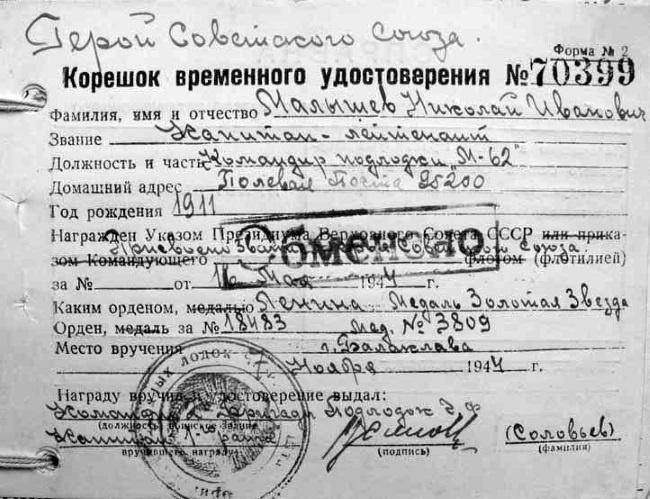 Герой Советского Союза.
Форма № 2
Корешок временного удостоверения № 70399
Фамилия, имя и отчество Малышев Николай Иванович
Звание Капитан-лейтенант
Должность и часть Командир подлодки "М-62"
Домашний адрес Полевая Почта 25200
Год рождения 1911
Награжден Указом Президиума Верховного Совета СССР или прика-
Присвоено звание Героя Советского Союза.
зом Командующего флотом (флотилией)
Обменено
за № от 16 Мая 1944 г.
Каким орденом, медалью Ленина Медаль Золотая Звезда
Орден, медаль за № 18483 Мед. № 3809
Место вручения г. Балаклава
7 Ноября 1944 г.
Награду вручил и удостоверение выдал:
Командир Бригады Подлодок ЧФ
(должность, воинское звание
Капитан 1- ранга
вручившего награду)
(подпись)
(Соловьев)
(фамилия)